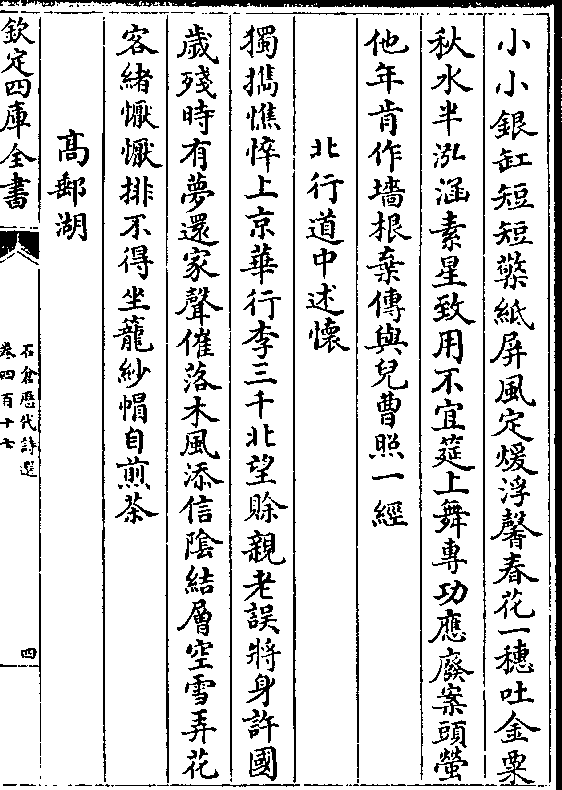 小小銀缸短短檠紙屏風定煖浮馨春花一穗吐金粟
秋水半泓涵素星致用不宜筵上舞專功應廢案頭螢
他年肯作墻根棄傳與兒曹照一經
北行道中述懷
獨擕憔悴上京華行李三千北望賒親老誤將身許國
歲殘時有夢還家聲催落木風添信陰結層空雪弄花
客緒懨懨排不得坐籠紗㡌自煎茶
高郵湖
欽定四庫全書
石倉歷代詩選
卷四百十七
四